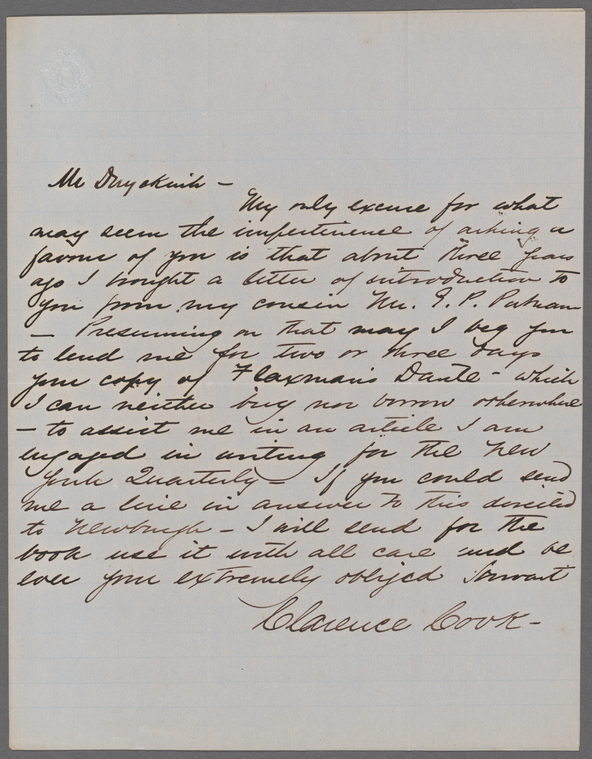 Mr Duyckink –
My only excuse for what
may seem the impertinence of asking a
favour of you is that about three years
ago I brought a letter of introduction to
you from my cousin Mr. G. P. Putnam
– Presuming on that may I beg you
to lend me for two or three days
your copy of Flaxman's Dante – which
I can neither buy nor borrow otherwhere
– to assist me in an article I am
engaged in writing for the New
York Quarterly – If you could send
me a line in answer to this directed
to Newburgh – I will send for the
book use it with all care and be
ever your extremely obliged Servant
Clarence Cook –